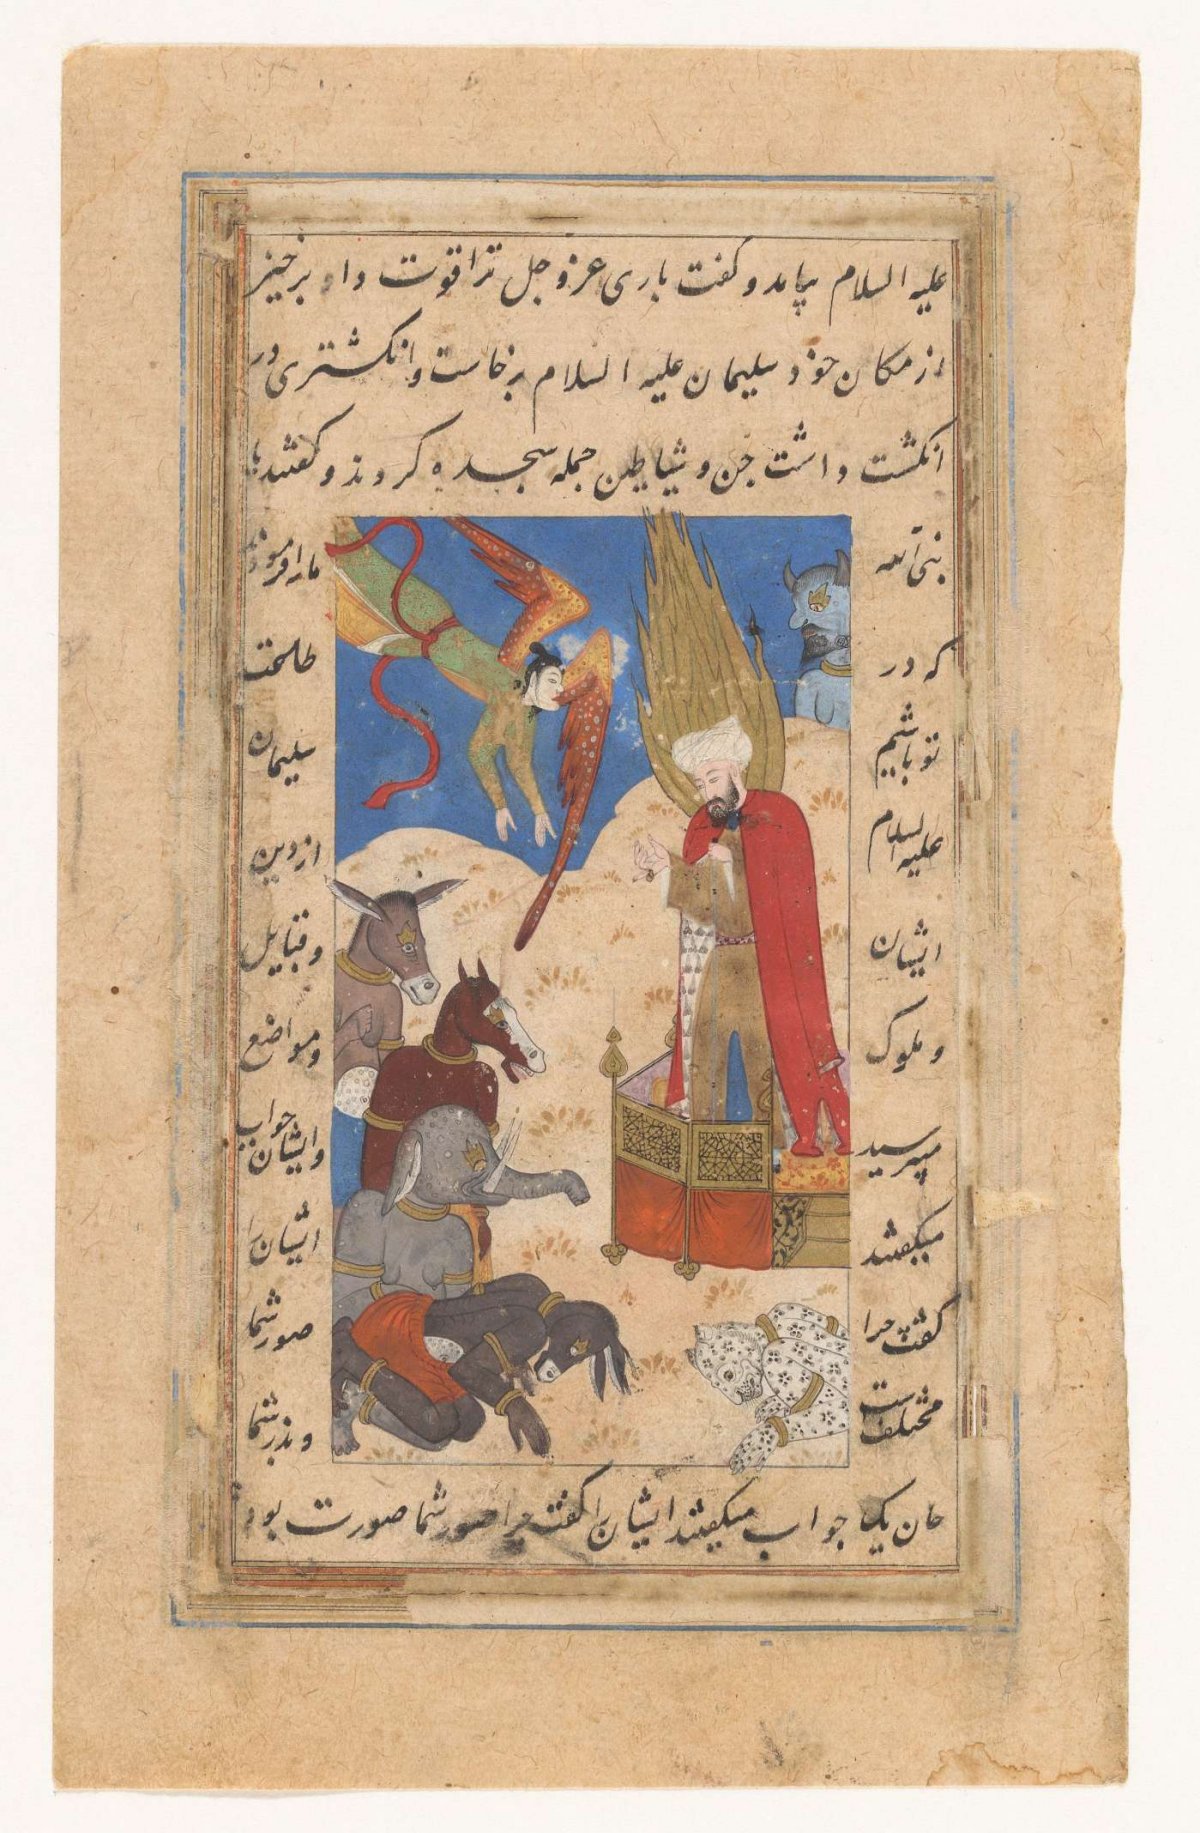 علیه السلام بیامد و گفت باری عز و جل ترا قوت داد برخیز
از مکان خود سلیمان علیه السلام برخاست و انگشتری در
انگشت داشت جن و شیاطین جمله سجده کردند و گفتند یا
نبی الله ما را
که در طاعت
تو باشیم سلیمان
علیه السلام از دین
ایشان و قبایل
و ملوک و مواضع
میپرسید و ایشان جواب
میگفتند ایشان را
گفت چرا صور شما
مختلفست و پدر شما
جان یک جواب میگفتند ایشان را گفت چرا صور شما صورت بود